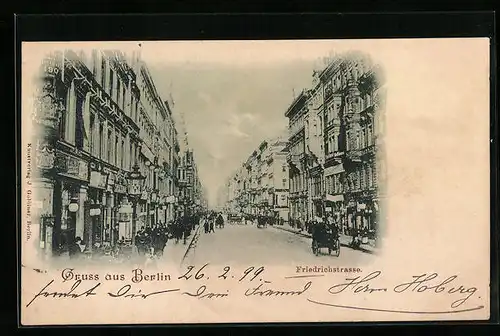 Kunstverlag J. Goldiner, Berlin.
Gruss aus Berlin 26. 2. 99. Friedrichstrasse.
sendet Dir Dein Freund Herm Hoberg